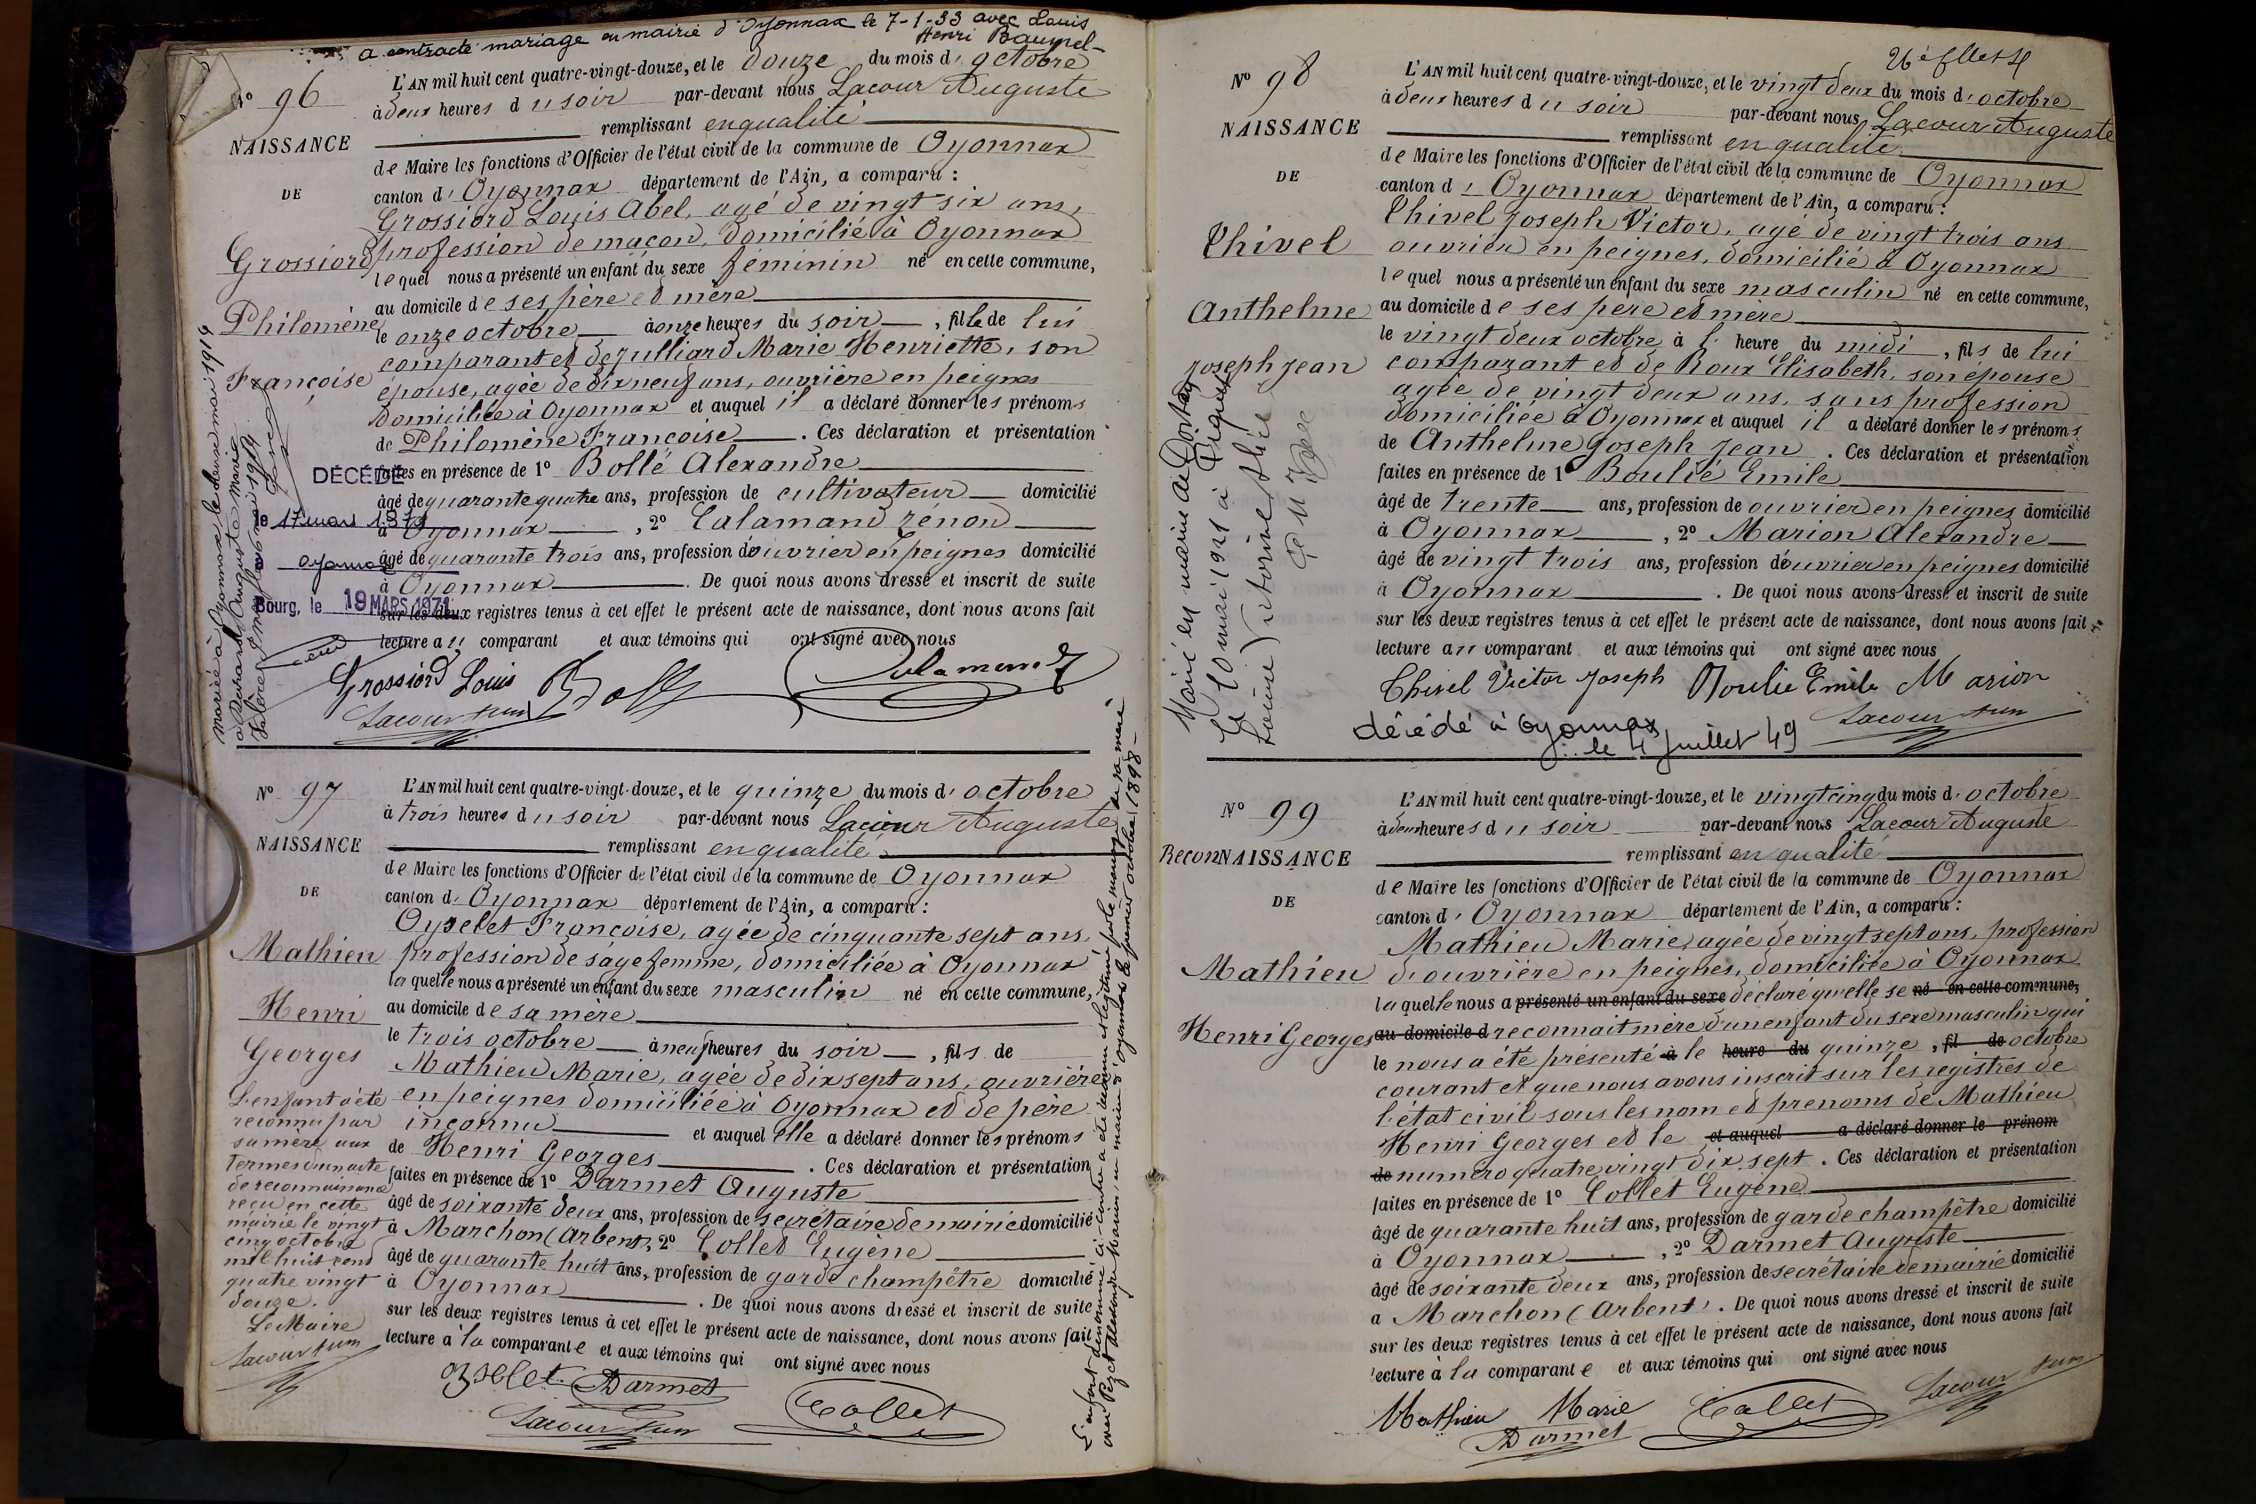 a contracté mariage en mairie d'Oyonnax le 7-1-33 avec Louis
Henri Baumel-
N° 96
NAISSANCE
DE
Grossiord
Philomène
Françoise
L'AN mil huit cent quatre-vingt-douze, et le douze du mois d'octobre
à deux heures du soir par-devant nous Lacour Auguste
remplissant en qualité
de Maire les fonctions d'Officier de l'état civil de la commune de Oyonnax
canton d'Oyonnax département de l'Ain, a comparu :
Grossiord Louis Abel, agé de vingt six ans,
profession de maçon, domicilié à Oyonnax
lequel nous a présenté un enfant du sexe féminin né en cette commune,
au domicile de ses père et mère
le onze octobre à onze heures du soir, fille de lui
comparant et de Julliard Marie Henriette, son
épouse, agée de dix neuf ans, ouvrière en peignes
domiciliée à Oyonnax et auquel il a déclaré donner les prénoms
de Philomène Françoise. Ces déclaration et présentation
faites en présence de 1° Bollé Alexandre
âgé de quarante quatre ans, profession de cultivateur domicilié
à Oyonnax, 2° Calamand Zénon
âgé de quarante trois ans, profession d'ouvrier en peignes domicilié
à Oyonnax. De quoi nous avons dressé et inscrit de suite
sur les deux registres tenus à cet effet le présent acte de naissance, dont nous avons fait
lecture au comparant et aux témoins qui ont signé avec nous
Grossiord Louis
Lacour
mariée à Oyonnax le
DÉCÉDÉ
le 17 mars 1971
à Oyonnax
Bourg, le 19 MARS 1971
N° 97
NAISSANCE
DE
Mathieu
Henri
Georges
L'enfant a été
reconnu par
sa mère aux
termes d'un acte
de reconnaissance
reçu en cette
mairie le vingt
cinq octobre
mil huit cent
quatre vingt
douze.
Le Maire
Lacour
L'AN mil huit cent quatre-vingt-douze, et le quinze du mois d'octobre
à trois heures du soir par-devant nous Lacour Auguste
remplissant en qualité
de Maire les fonctions d'Officier de l'état civil de la commune de Oyonnax
canton d'Oyonnax département de l'Ain, a comparu :
Oyselet Françoise, agée de cinquante sept ans,
profession de sage femme, domiciliée à Oyonnax
laquelle nous a présenté un enfant du sexe masculin né en cette commune,
au domicile de sa mère
le trois octobre à neuf heures du soir, fils de
Mathieu Marie, agée de dix sept ans, ouvrière
en peignes domiciliée à Oyonnax et de père
inconnu et auquel elle a déclaré donner les prénoms
de Henri Georges. Ces déclaration et présentation
faites en présence de 1° Darmet Auguste
âgé de soixante deux ans, profession de secrétaire de mairie domicilié
à Marchon (Arbent), 2° Collet Eugène
âgé de quarante huit ans, profession de garde champêtre domicilié
à Oyonnax. De quoi nous avons dressé et inscrit de suite
sur les deux registres tenus à cet effet le présent acte de naissance, dont nous avons fait
lecture à la comparante et aux témoins qui ont signé avec nous
Oyselet Darmet
Lacour Collet
L'enfant dénommé ci-contre a été reconnu et légitimé par le mariage de sa mère
en mairie d'Oyonnax le premier octobre 1898-
N° 98
NAISSANCE
DE
Chivel
Anthelme
Joseph Jean
L'AN mil huit cent quatre-vingt-douze, et le vingt deux du mois d'octobre
à deux heures du soir par-devant nous Lacour Auguste
remplissant en qualité
de Maire les fonctions d'Officier de l'état civil de la commune de Oyonnax
canton d'Oyonnax département de l'Ain, a comparu :
Chivel Joseph Victor, agé de vingt trois ans
ouvrier en peignes, domicilié à Oyonnax
lequel nous a présenté un enfant du sexe masculin né en cette commune,
au domicile de ses père et mère
le vingt deux octobre à l'heure du midi, fils de lui
comparant et de Roux Elisabeth, son épouse
agée de vingt deux ans, sans profession
domiciliée à Oyonnax et auquel il a déclaré donner les prénoms
de Anthelme Joseph Jean. Ces déclaration et présentation
faites en présence de 1° Boulié Emile
âgé de trente ans, profession de ouvrier en peignes domicilié
à Oyonnax, 2° Marion Alexandre
âgé de vingt trois ans, profession d'ouvrier en peignes domicilié
à Oyonnax. De quoi nous avons dressé et inscrit de suite
sur les deux registres tenus à cet effet le présent acte de naissance, dont nous avons fait
lecture au comparant et aux témoins qui ont signé avec nous
Chivel Victor Joseph Boulié Emile Marion
Lacour
décédé à Oyonnax
le 4 juillet 49
Marié en mairie de Dortan
N° 99
ReconNAISSANCE
DE
Mathieu
Henri Georges
L'AN mil huit cent quatre-vingt-douze, et le vingt cinq du mois d'octobre
à deux heures du soir par-devant nous Lacour Auguste
remplissant en qualité
de Maire les fonctions d'Officier de l'état civil de la commune de Oyonnax
canton d'Oyonnax département de l'Ain, a comparu :
Mathieu Marie, agée de vingt sept ans, profession
d'ouvrière en peignes, domiciliée à Oyonnax
laquelle nous a présenté un enfant du sexe déclaré qu'elle se né en cette commune,
au domicile d reconnait mère d'un enfant du sexe masculin qui
le nous a été présenté à le heure du quinze, fil de octobre
courant et que nous avons inscrit sur les registres de
l'état civil sous les nom et prenoms de Mathieu
Henri Georges et le et auquel a déclaré donner le prénom
de numéro quatre vingt dix sept. Ces déclaration et présentation
faites en présence de 1° Collet Eugène
âgé de quarante huit ans, profession de garde champêtre domicilié
à Oyonnax, 2° Darmet Auguste
âgé de soixante deux ans, profession de secrétaire de mairie domicilié
a Marchon (Arbent). De quoi nous avons dressé et inscrit de suite
sur les deux registres tenus à cet effet le présent acte de naissance, dont nous avons fait
lecture à la comparante et aux témoins qui ont signé avec nous
Mathieu Marie Collet Lacour
Darmet